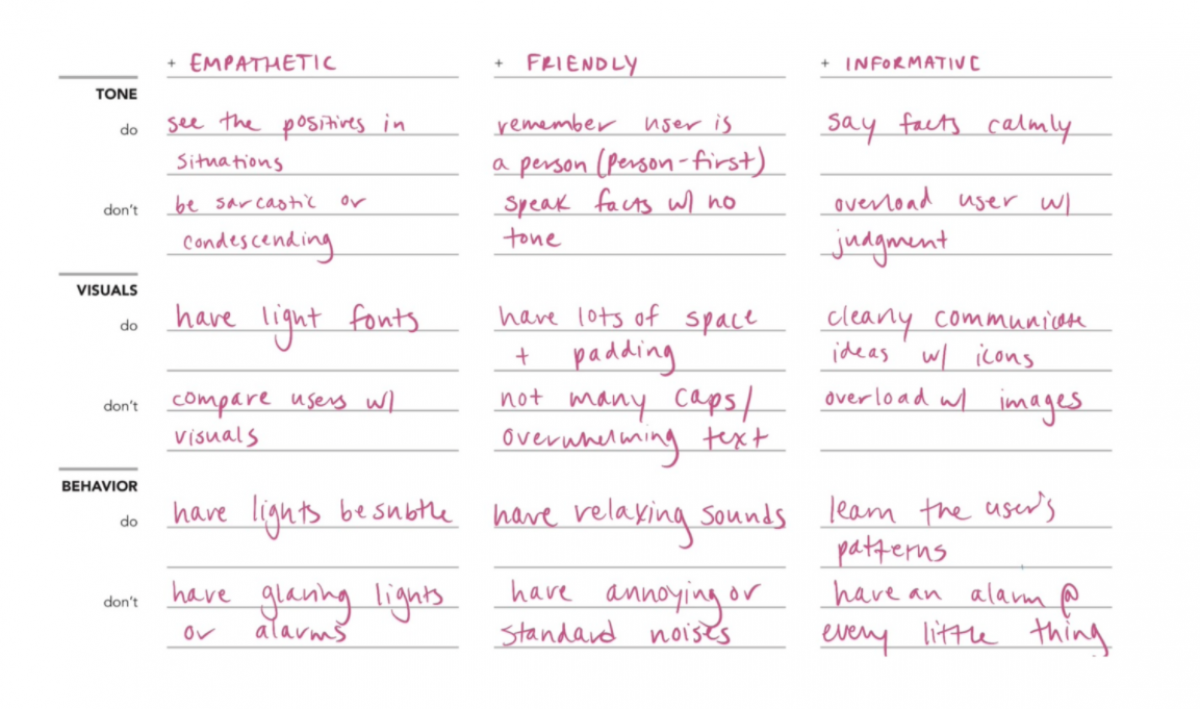 + EMPATHETIC + FRIENDLY + INFORMATIVE
TONE
do see the positives in remember user is say facts calmly
situations a person (person-first)
don't be sarcastic or speak facts w/ no overload user w/
condescending tone judgment
VISUALS
do have light fonts have lots of space clearly communicate
+ padding ideas w/ icons
don't compare users w/ not many caps/ overload w/ images
visuals overwhelming text
BEHAVIOR
do have lights be subtle have relaxing sounds learn the user's
patterns
don't have glaring lights have annoying or have an alarm @
or alarms standard noises every little thing